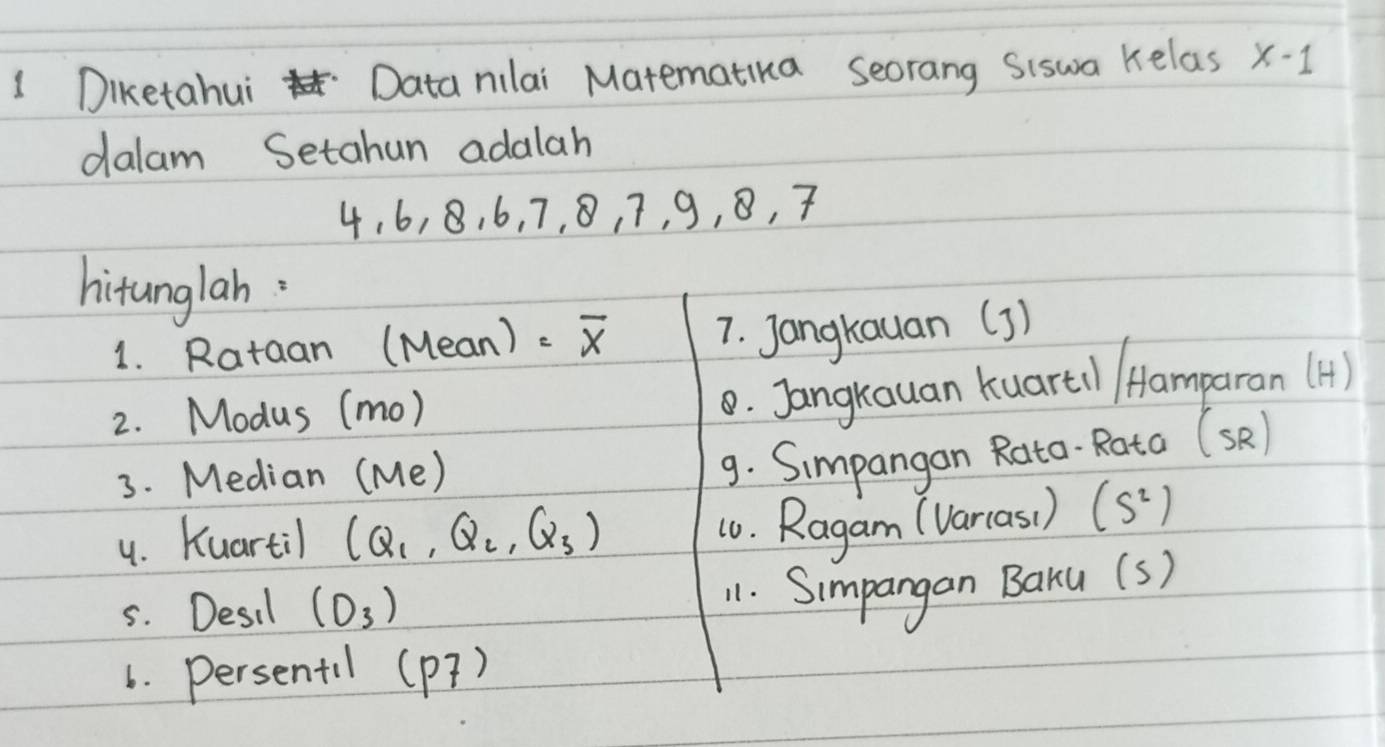 1 Diketahui Data nilai Matematika Seorang Siswa Kelas X-1
dalam Setahun adalah
4,6,8,6,7,8,7,9,8,7
hitunglah :
1. Rataan (Mean) = x̄
2. Modus (mo)
3. Median (Me)
4. Kuartil (Q₁, Q₂, Q₃)
5. Desil (D₃)
6. Persentil (P7)
7. Jangkauan (J)
8. Jangkauan kuartil/Hamparan (H)
9. Simpangan Rata-Rata (SR)
10. Ragam (Variasi) (S²)
11. Simpangan Baku (S)